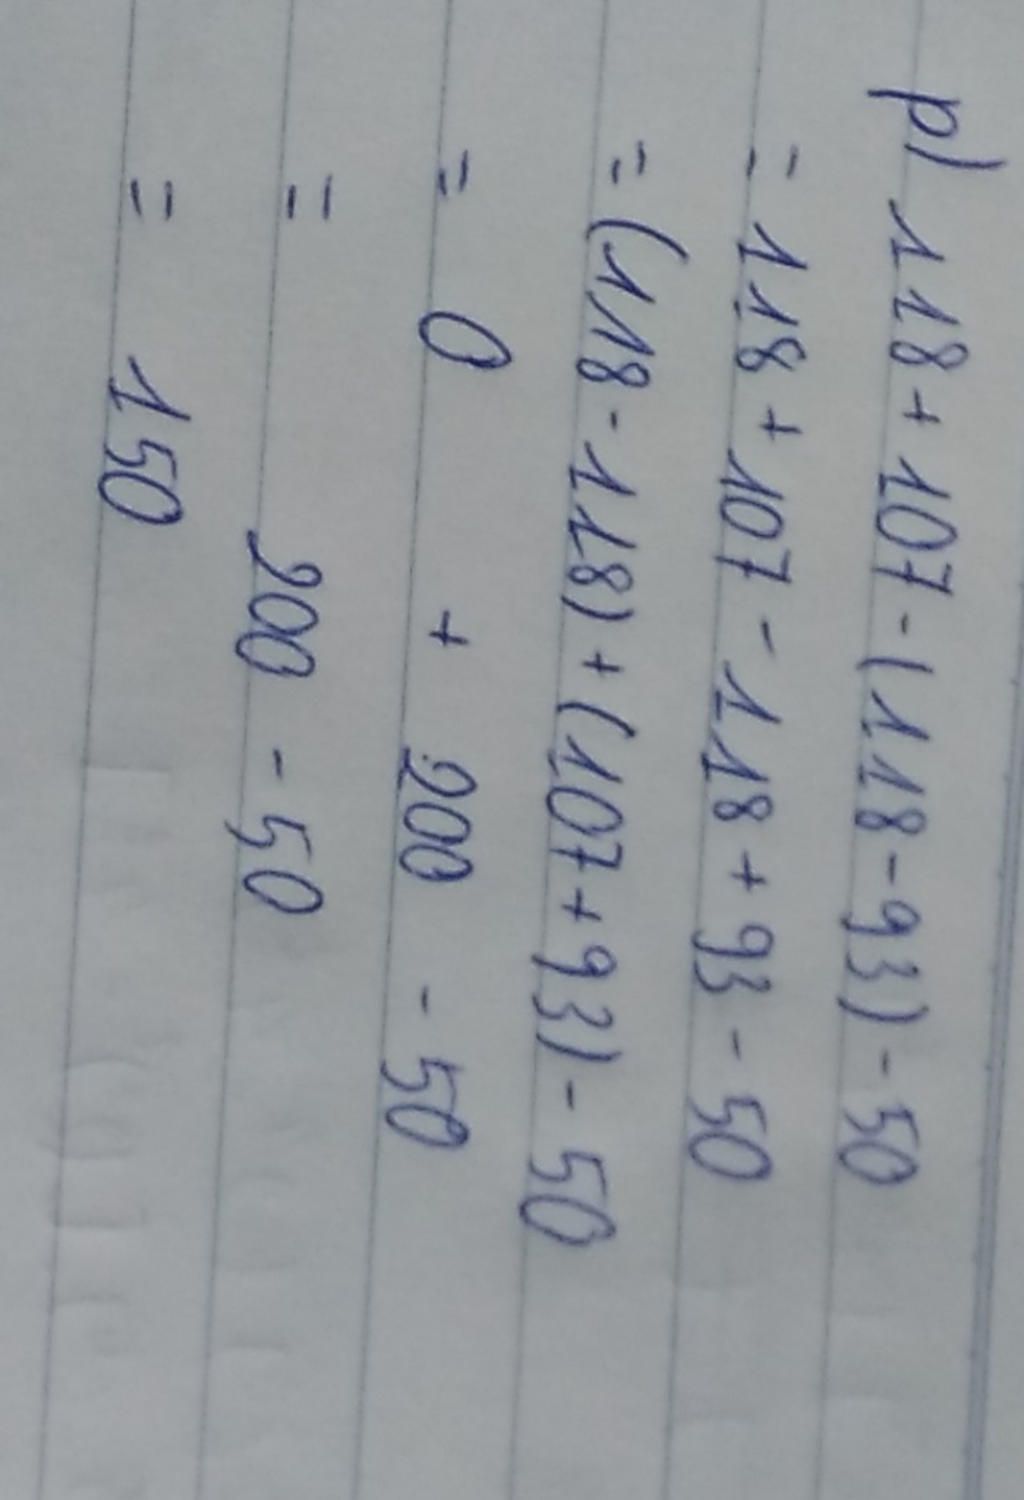 p) 118 + 107 - (118 - 93) - 50
= 118 + 107 - 118 + 93 - 50
= (118 - 118) + (107 + 93) - 50
= 0 + 200 - 50
= 200 - 50
= 150